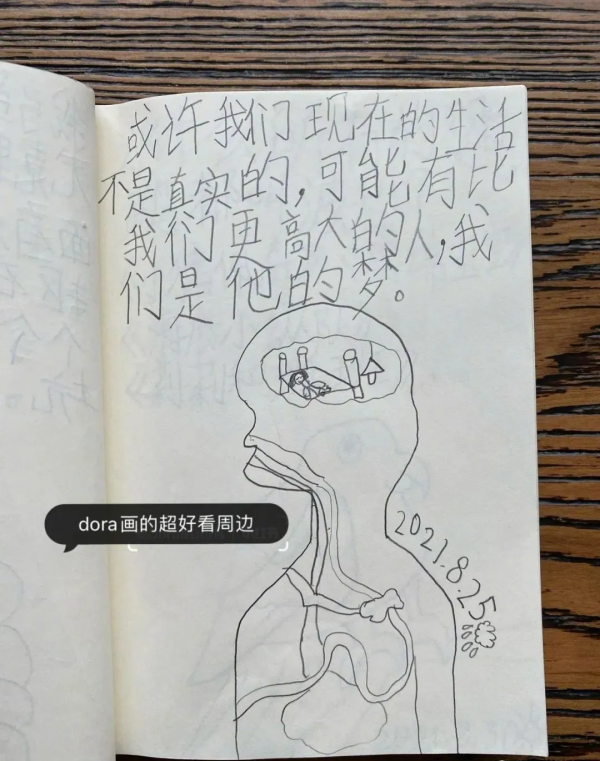 或许我们现在的生活
不是真实的,可能有比
我们更高大的人,我
们是他的梦。
dora画的超好看周边
2021.8.25